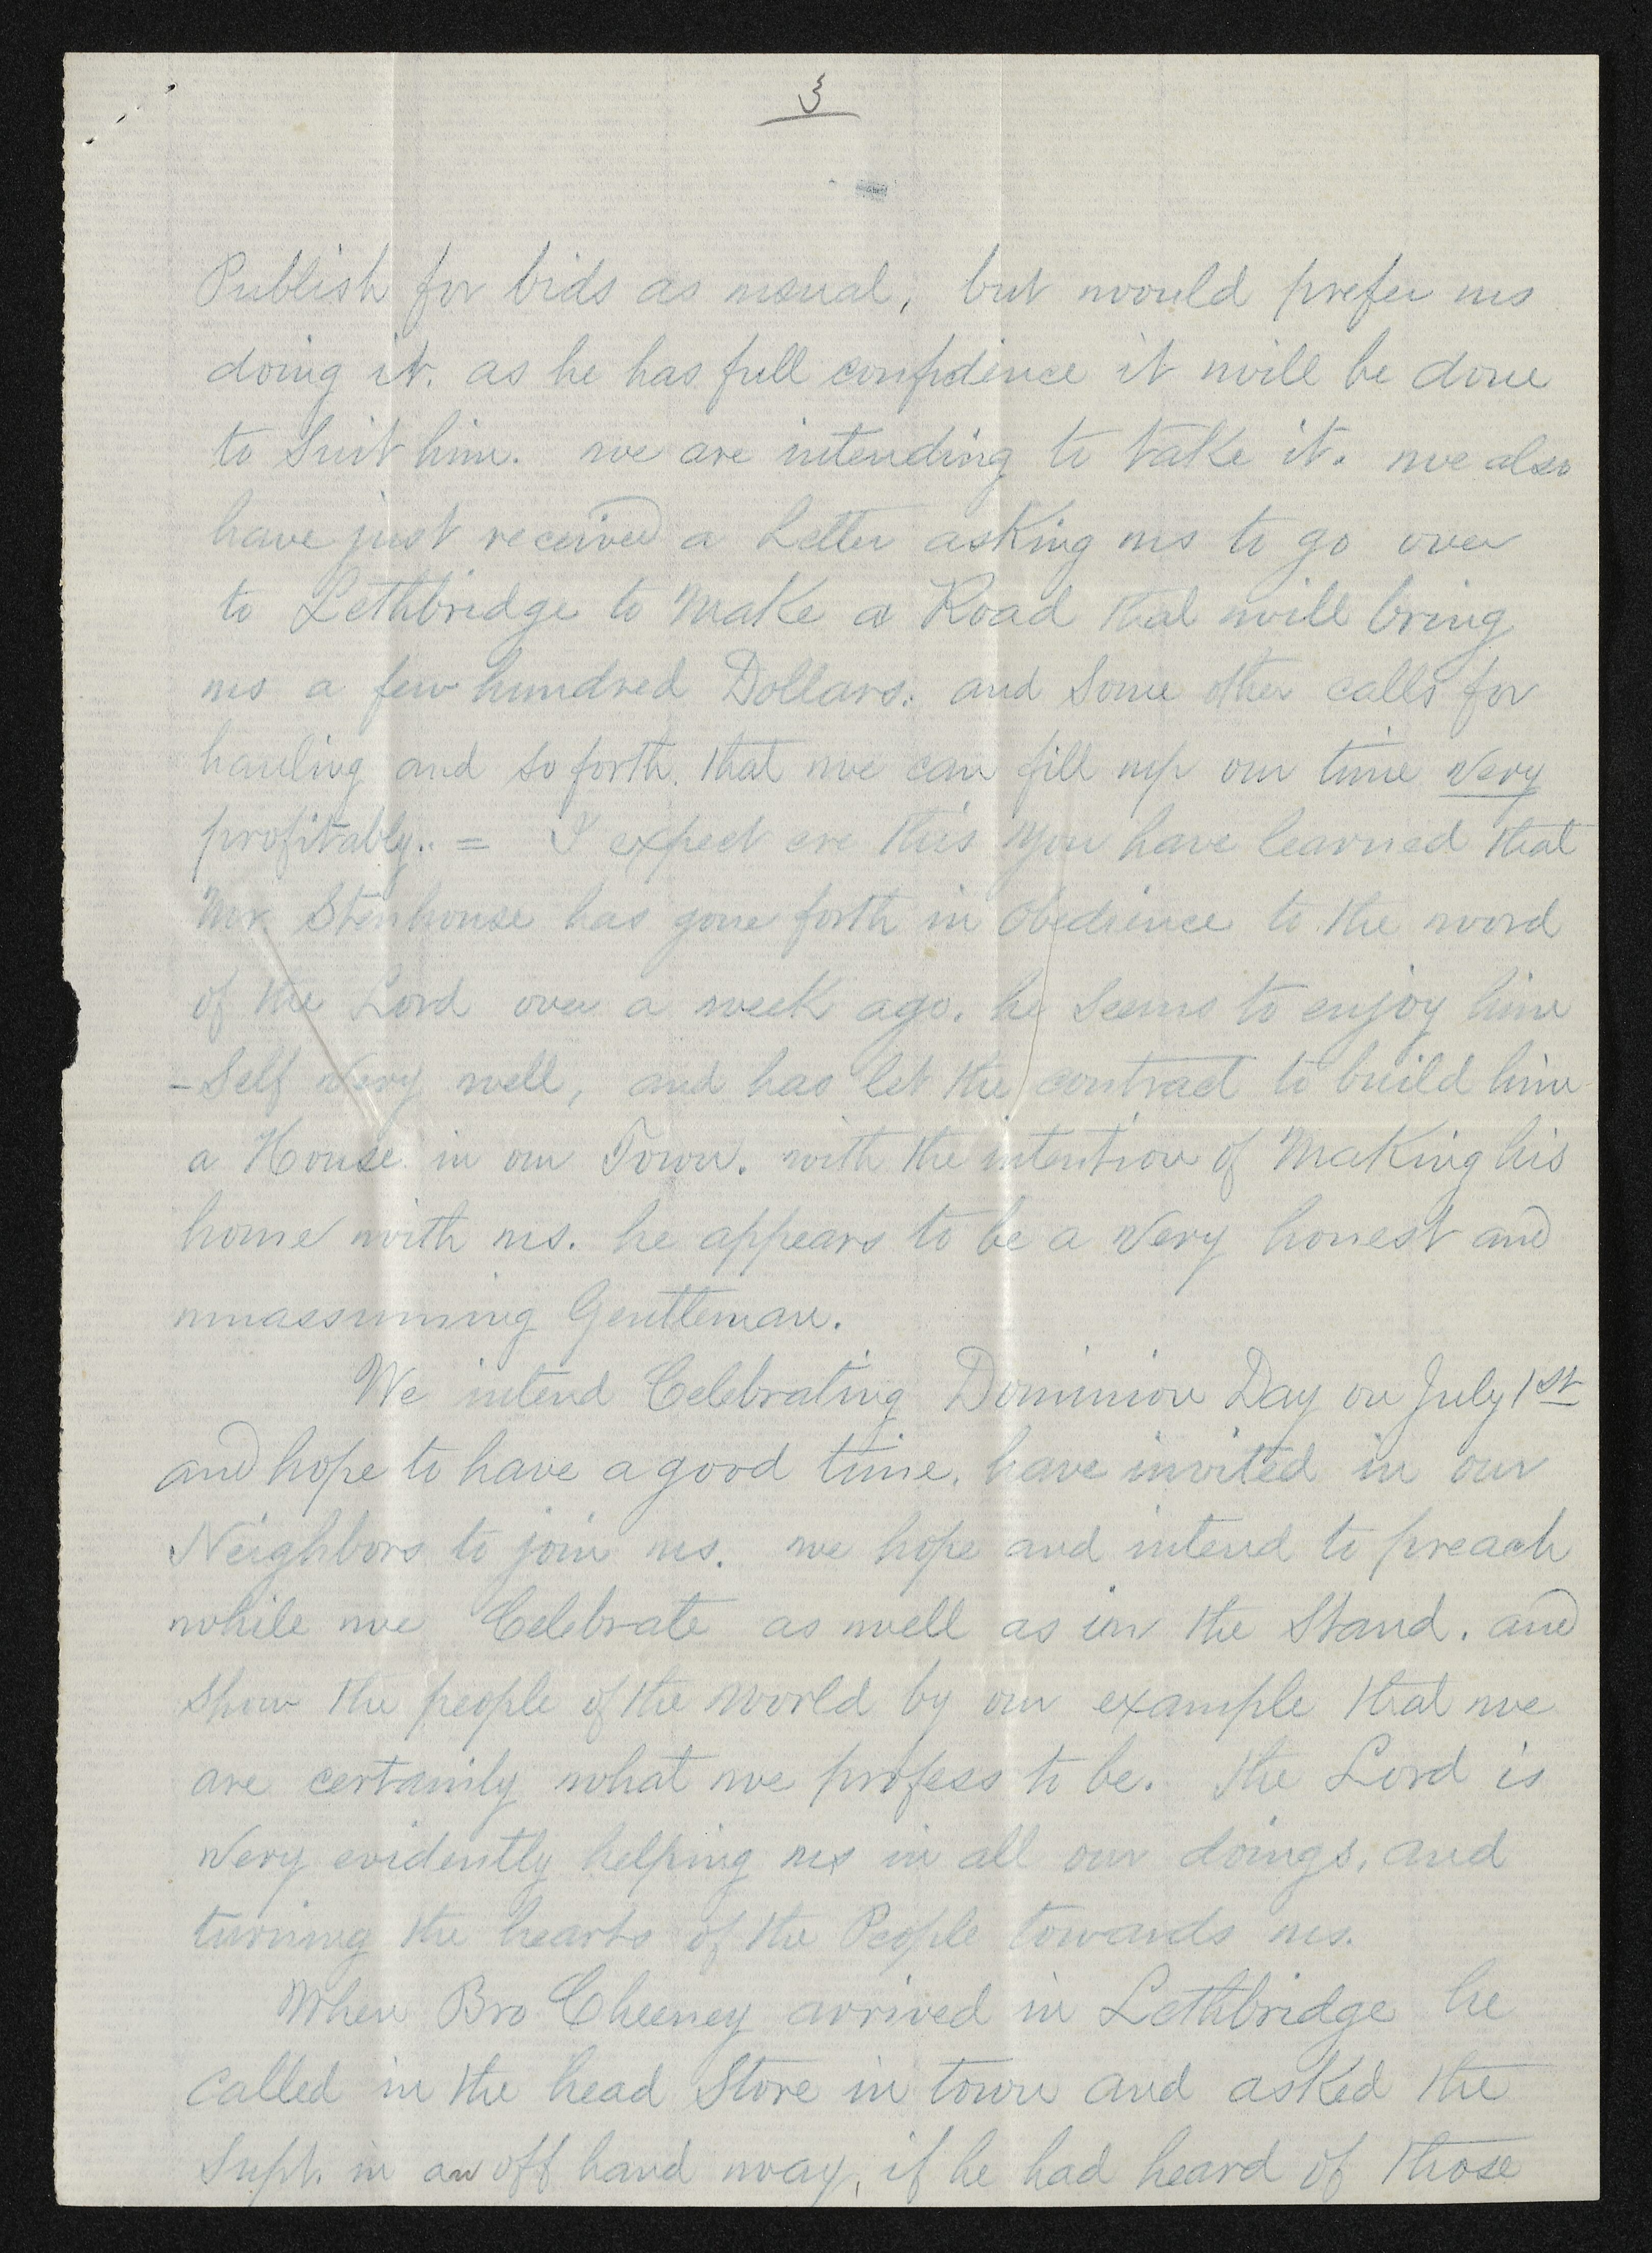 3
Publish for bids as usual, but would prefer us
doing it. as he has full confidence it will be done
to Suit him. we are intending to take it. we also
have just received a Letter asking us to go over
to Lethbridge to Make a Road that will bring
us a few hundred Dollars. and Some other calls for
hauling and so forth. that we can fill up our time very
profitably. = I expect ere this you have learned that
Mr. Stenhouse has gone forth in obedience to the word
of the Lord over a week ago. he Seems to enjoy him
-Self very well, and has let the contract to build him
a House in our Town. with the intention of Making his
home with us. he appears to be a very honest and
unassuming Gentleman.
We intend Celebrating Dominion Day on July 1st
and hope to have a good time. have invited in our
Neighbors to join us. we hope and intend to preach
while we Celebrate as well as in the Stand. and
Show the people of the world by our example that we
are certainly what we profess to be. the Lord is
very evidently helping us in all our doings, and
turning the hearts of the People towards us.
When Bro Cheeney arrived in Lethbridge he
called in the head Store in town and asked the
Supt. in an off hand way, if he had heard of those